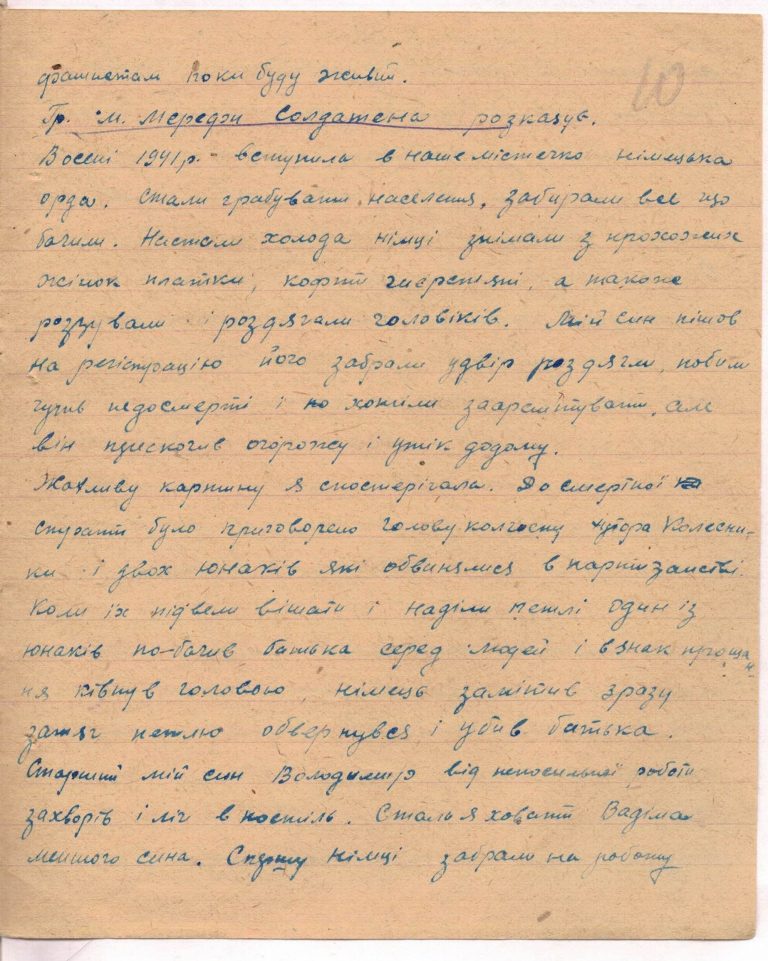 фашистам поки буду живий.
10
Гр. м. Мерефи Солдатена розказує.
Восені 1941 р. вступила в наше містечко німецька
орда. Стали грабувати населення, забирали все що
бачили. Настали холода німці знімали з прохожих
жінок платки, кофти шерстяні, а також
розували і роздягали головіків. Мій син пішов
на регістрацію його забрали удвір роздягли, побили
чуть недосмерті і хотіли заарештувати, але
він перескочив огорожу і утік додому.
Жахливу картину я спостерігала. До смертної
страти було приговорено голову колгоспу хутора Колесни-
ки і двох юнаків які обвинялися в партизанстві.
Коли їх підвели вішати і наділи петлі один із
юнаків по-бачив батька серед людей і взнак проща
ня ківнув головою, німець замітив зразу
затяг петлю обвернувся і убив батька.
Старший мій син Володимир від непосильної роботи
захворів і ліг в постіль. Стала я ховати Вадіма
меншого сина. Спершу німці забрали на роботу